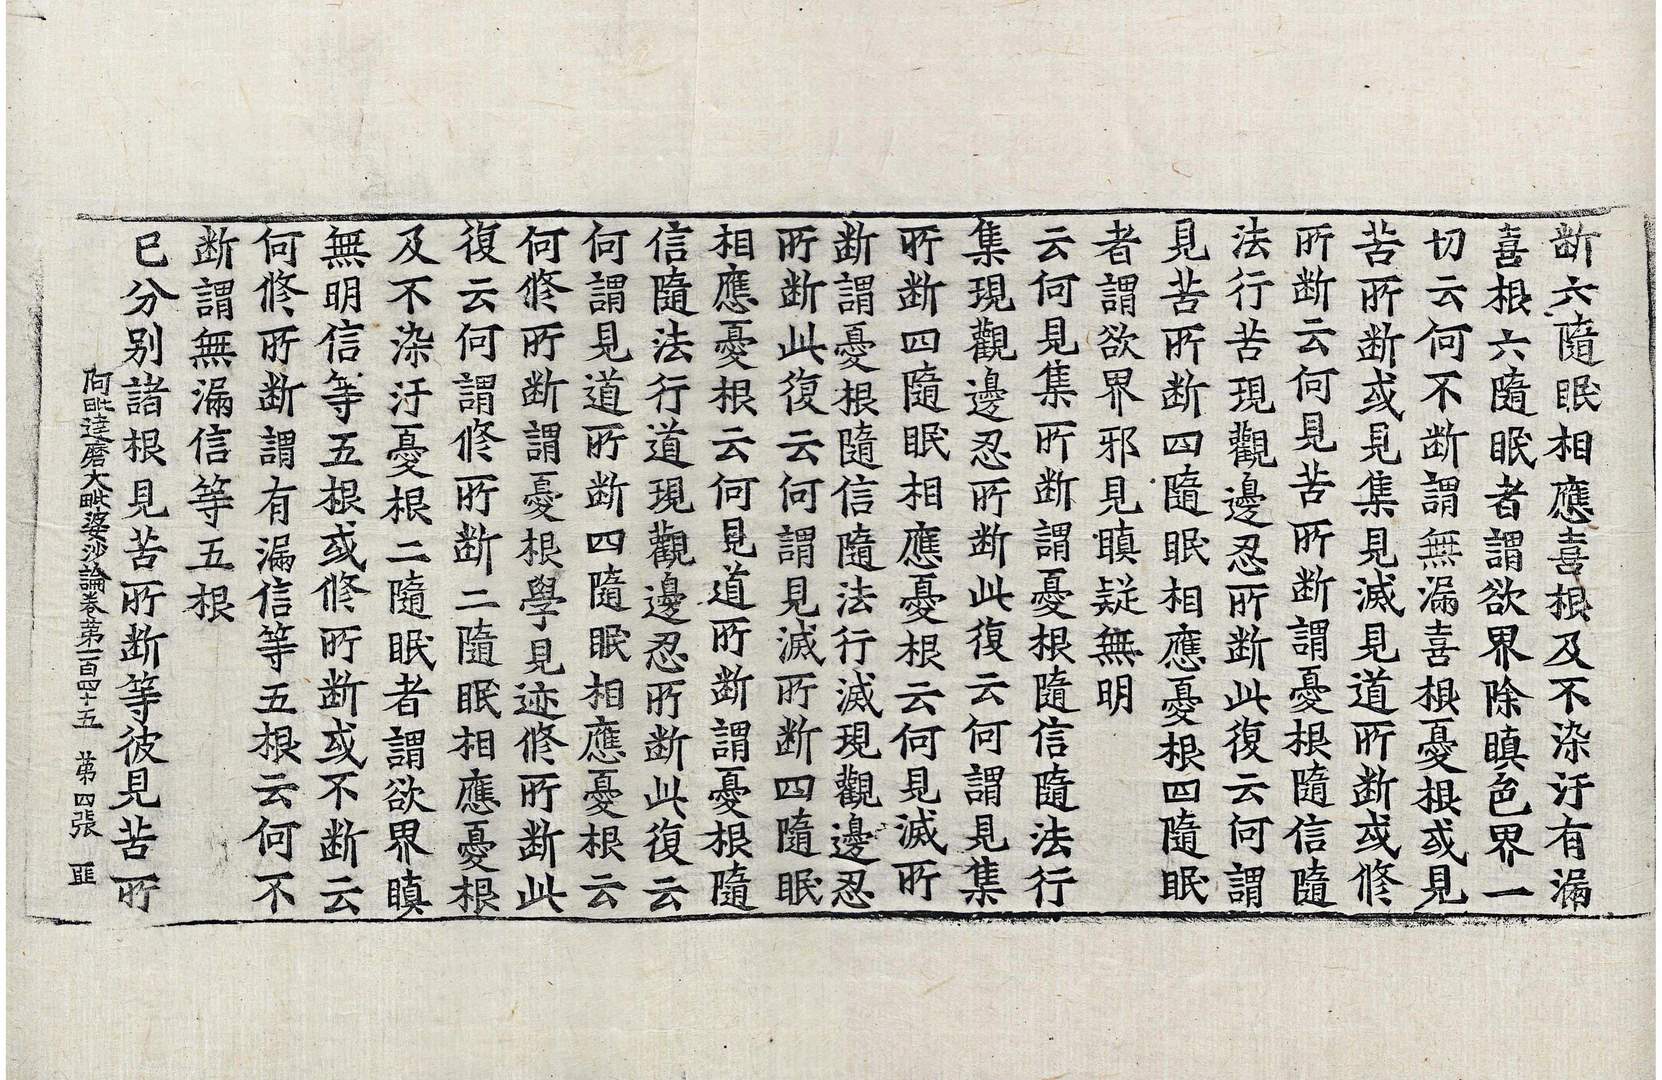 断六隨眠相應喜根及不染汙有漏
喜根六隨眠者謂欲界除瞋色界一
切云何不断謂無漏喜根憂根或見
苦所断或見集見滅見道所断或修
所断云何見苦所断謂憂根隨信隨
法行苦現觀邊忍所断此復云何謂
見苦所断四隨眠相應憂根四隨眠
者謂欲界邪見瞋疑無明
云何見集所断謂憂根隨信隨法行
集現觀邊忍所断此復云何謂見集
所断四隨眠相應憂根云何見滅所
断謂憂根隨信隨法行滅現觀邊忍
所断此復云何謂見滅所断四隨眠
相應憂根云何見道所断謂憂根隨
信隨法行道現觀邊忍所断此復云
何謂見道所断四隨眠相應憂根云
何修所断謂憂根學見迹修所断此
復云何謂修所断二隨眠相應憂根
及不染汙憂根二隨眠者謂欲界瞋
無明信等五根或修所断或不断云
何修所断謂有漏信等五根云何不
断謂無漏信等五根
已分別諸根見苦所断等彼見苦所
阿毗達磨大毗婆沙論卷第一百四十五 第四張 匪